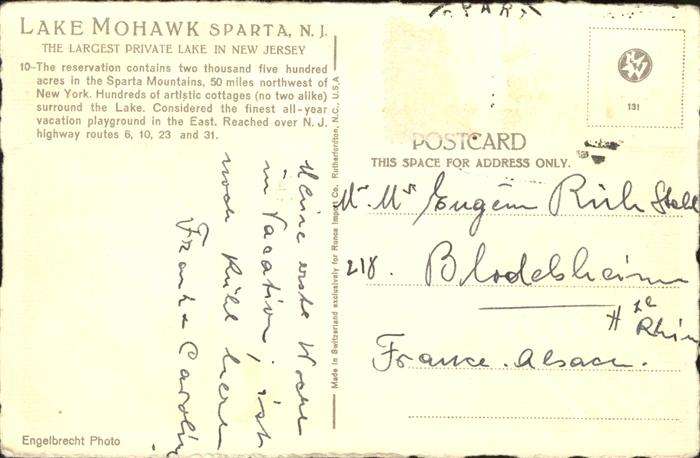 LAKE MOHAWK SPARTA, N. J.
THE LARGEST PRIVATE LAKE IN NEW JERSEY
10–The reservation contains two thousand five hundred
acres in the Sparta Mountains, 50 miles northwest of
New York. Hundreds of artistic cottages (no two alike)
surround the Lake. Considered the finest all-year
vacation playground in the East. Reached over N. J.
highway routes 6, 10, 23 and 31.
Meine erste Woche
in Vacation, ist
noch Kühl hier
Frank & Carolin
Engelbrecht Photo
Made in Switzerland exclusively for Ronce Import Co. Rutherfordton, N.C., U.S.A
SPART
131
POSTCARD
THIS SPACE FOR ADDRESS ONLY.
Mr. Mr Eugèn Rich
218. Blodelsheim
Ht Rhin
France. Alsace.